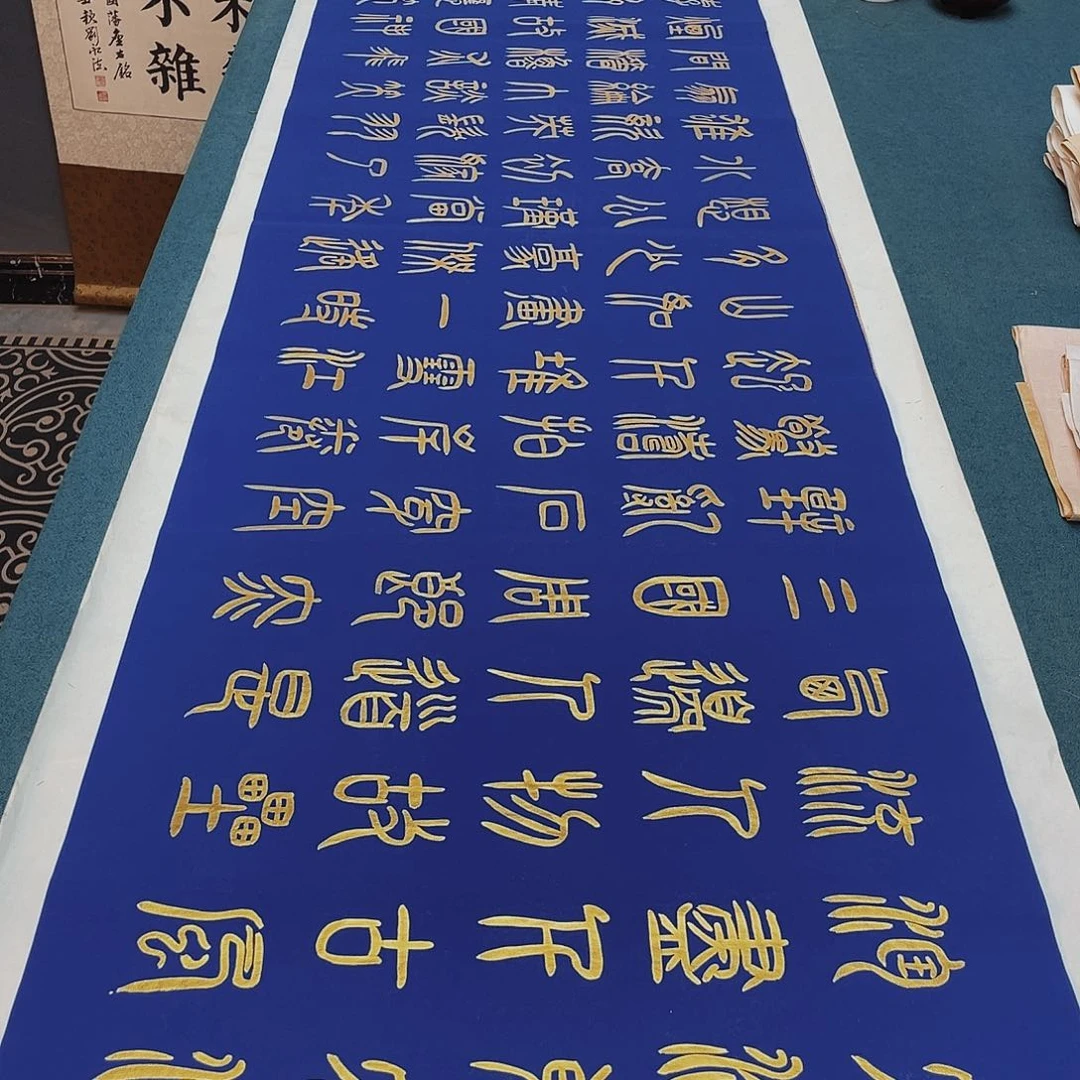 大江東去浪
淘盡千古風
流人物故壘
西邊人道是
三國周郎赤
壁亂石穿空
驚濤拍岸捲
起千堆雪江
山如畫一時
多少豪傑遙
想公瑾當年
小喬初嫁了
雄姿英發羽
扇綸巾談笑
間檣櫓灰飛
煙滅故國神
雜